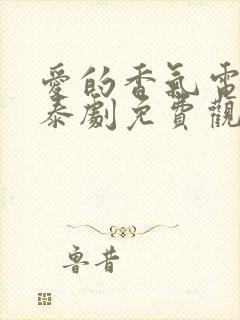 愛的香氣電
泰劇免費觀
魯昔